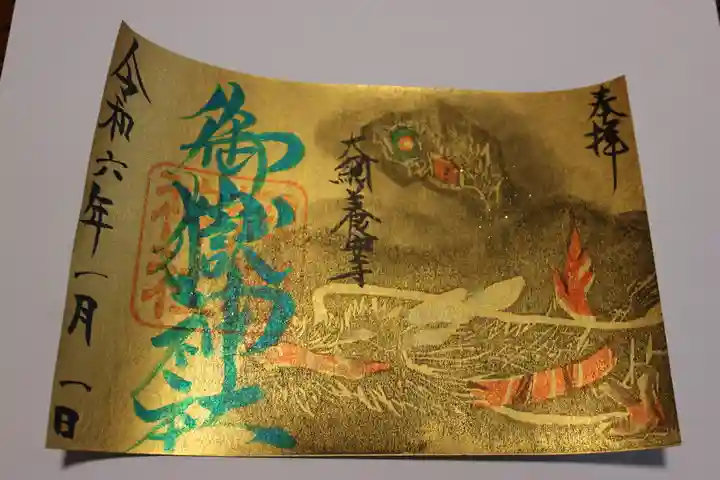 奉拝
大網養興寺
御嶽神社
令和六年一月一日